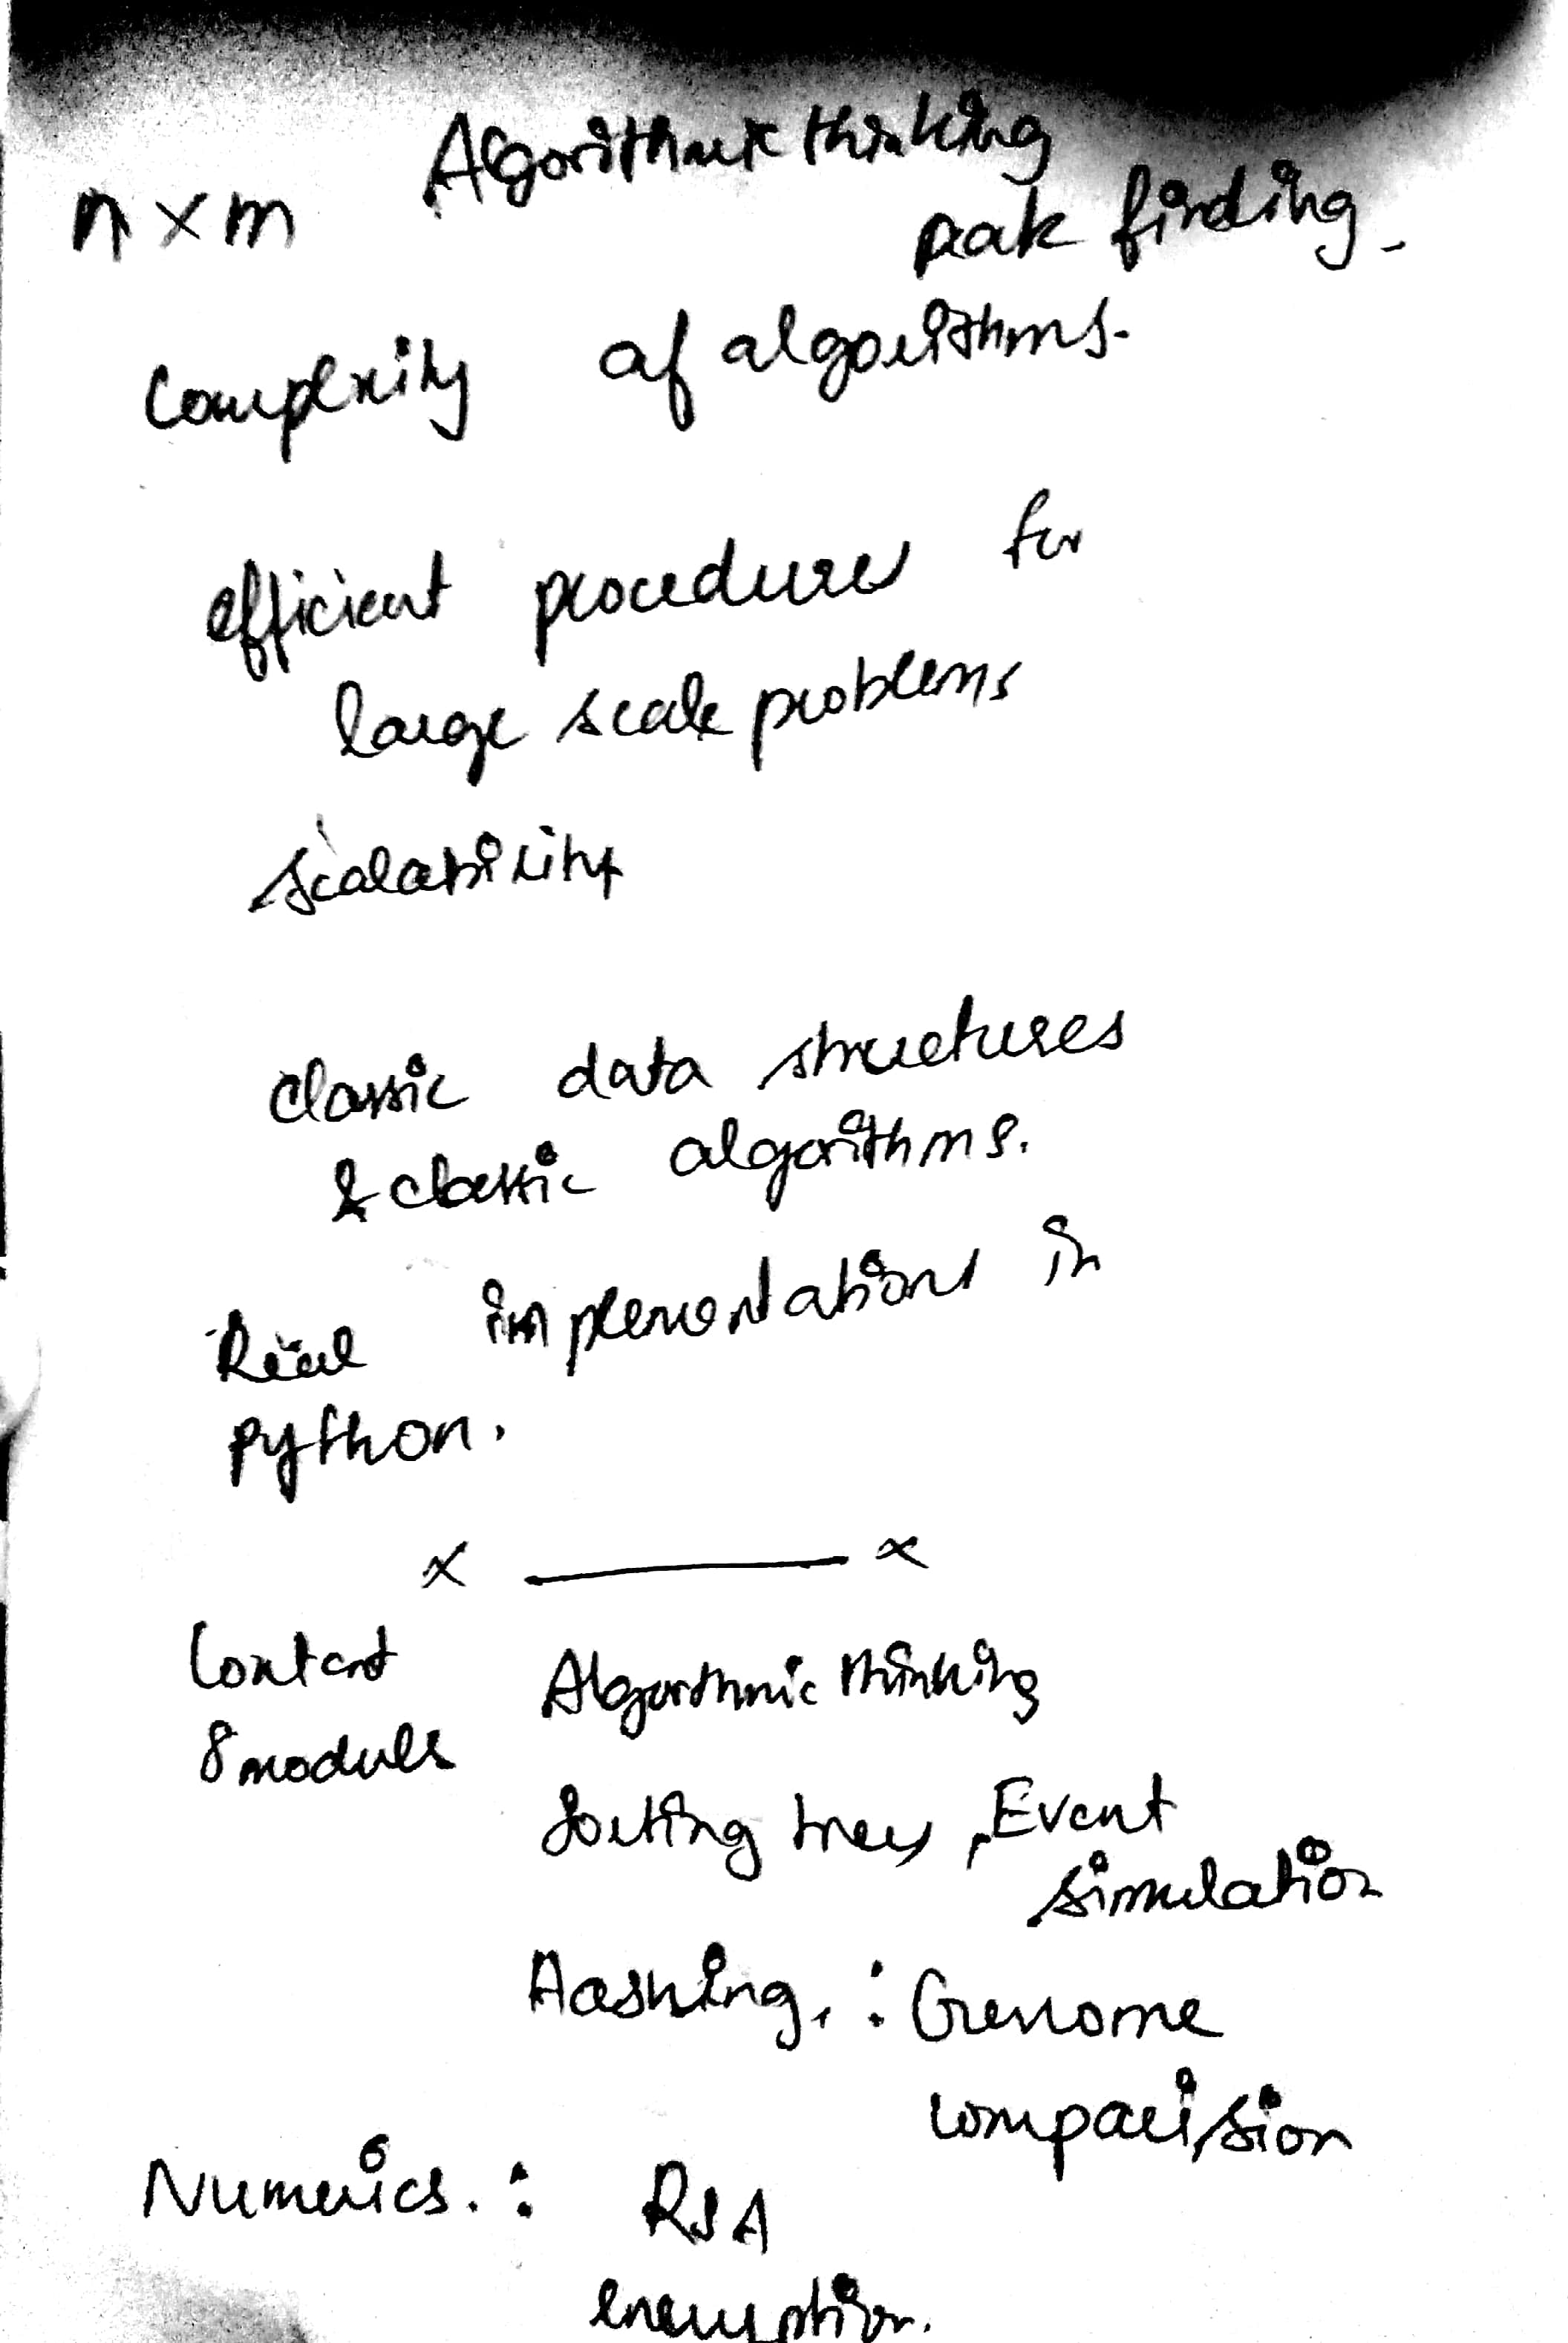 Algorithmic thinking
n x m
peak finding.
Complexity of algorithms.
efficient procedures for
large scale problems
scalability
classic data structures
& classic algorithms.
Real implementations in
python.
x ——— x
Content Algorithmic thinking
8 modules
Sorting trees, Event
simulation
Hashing, : Genome
comparision
Numerics. : RSA
encryption.